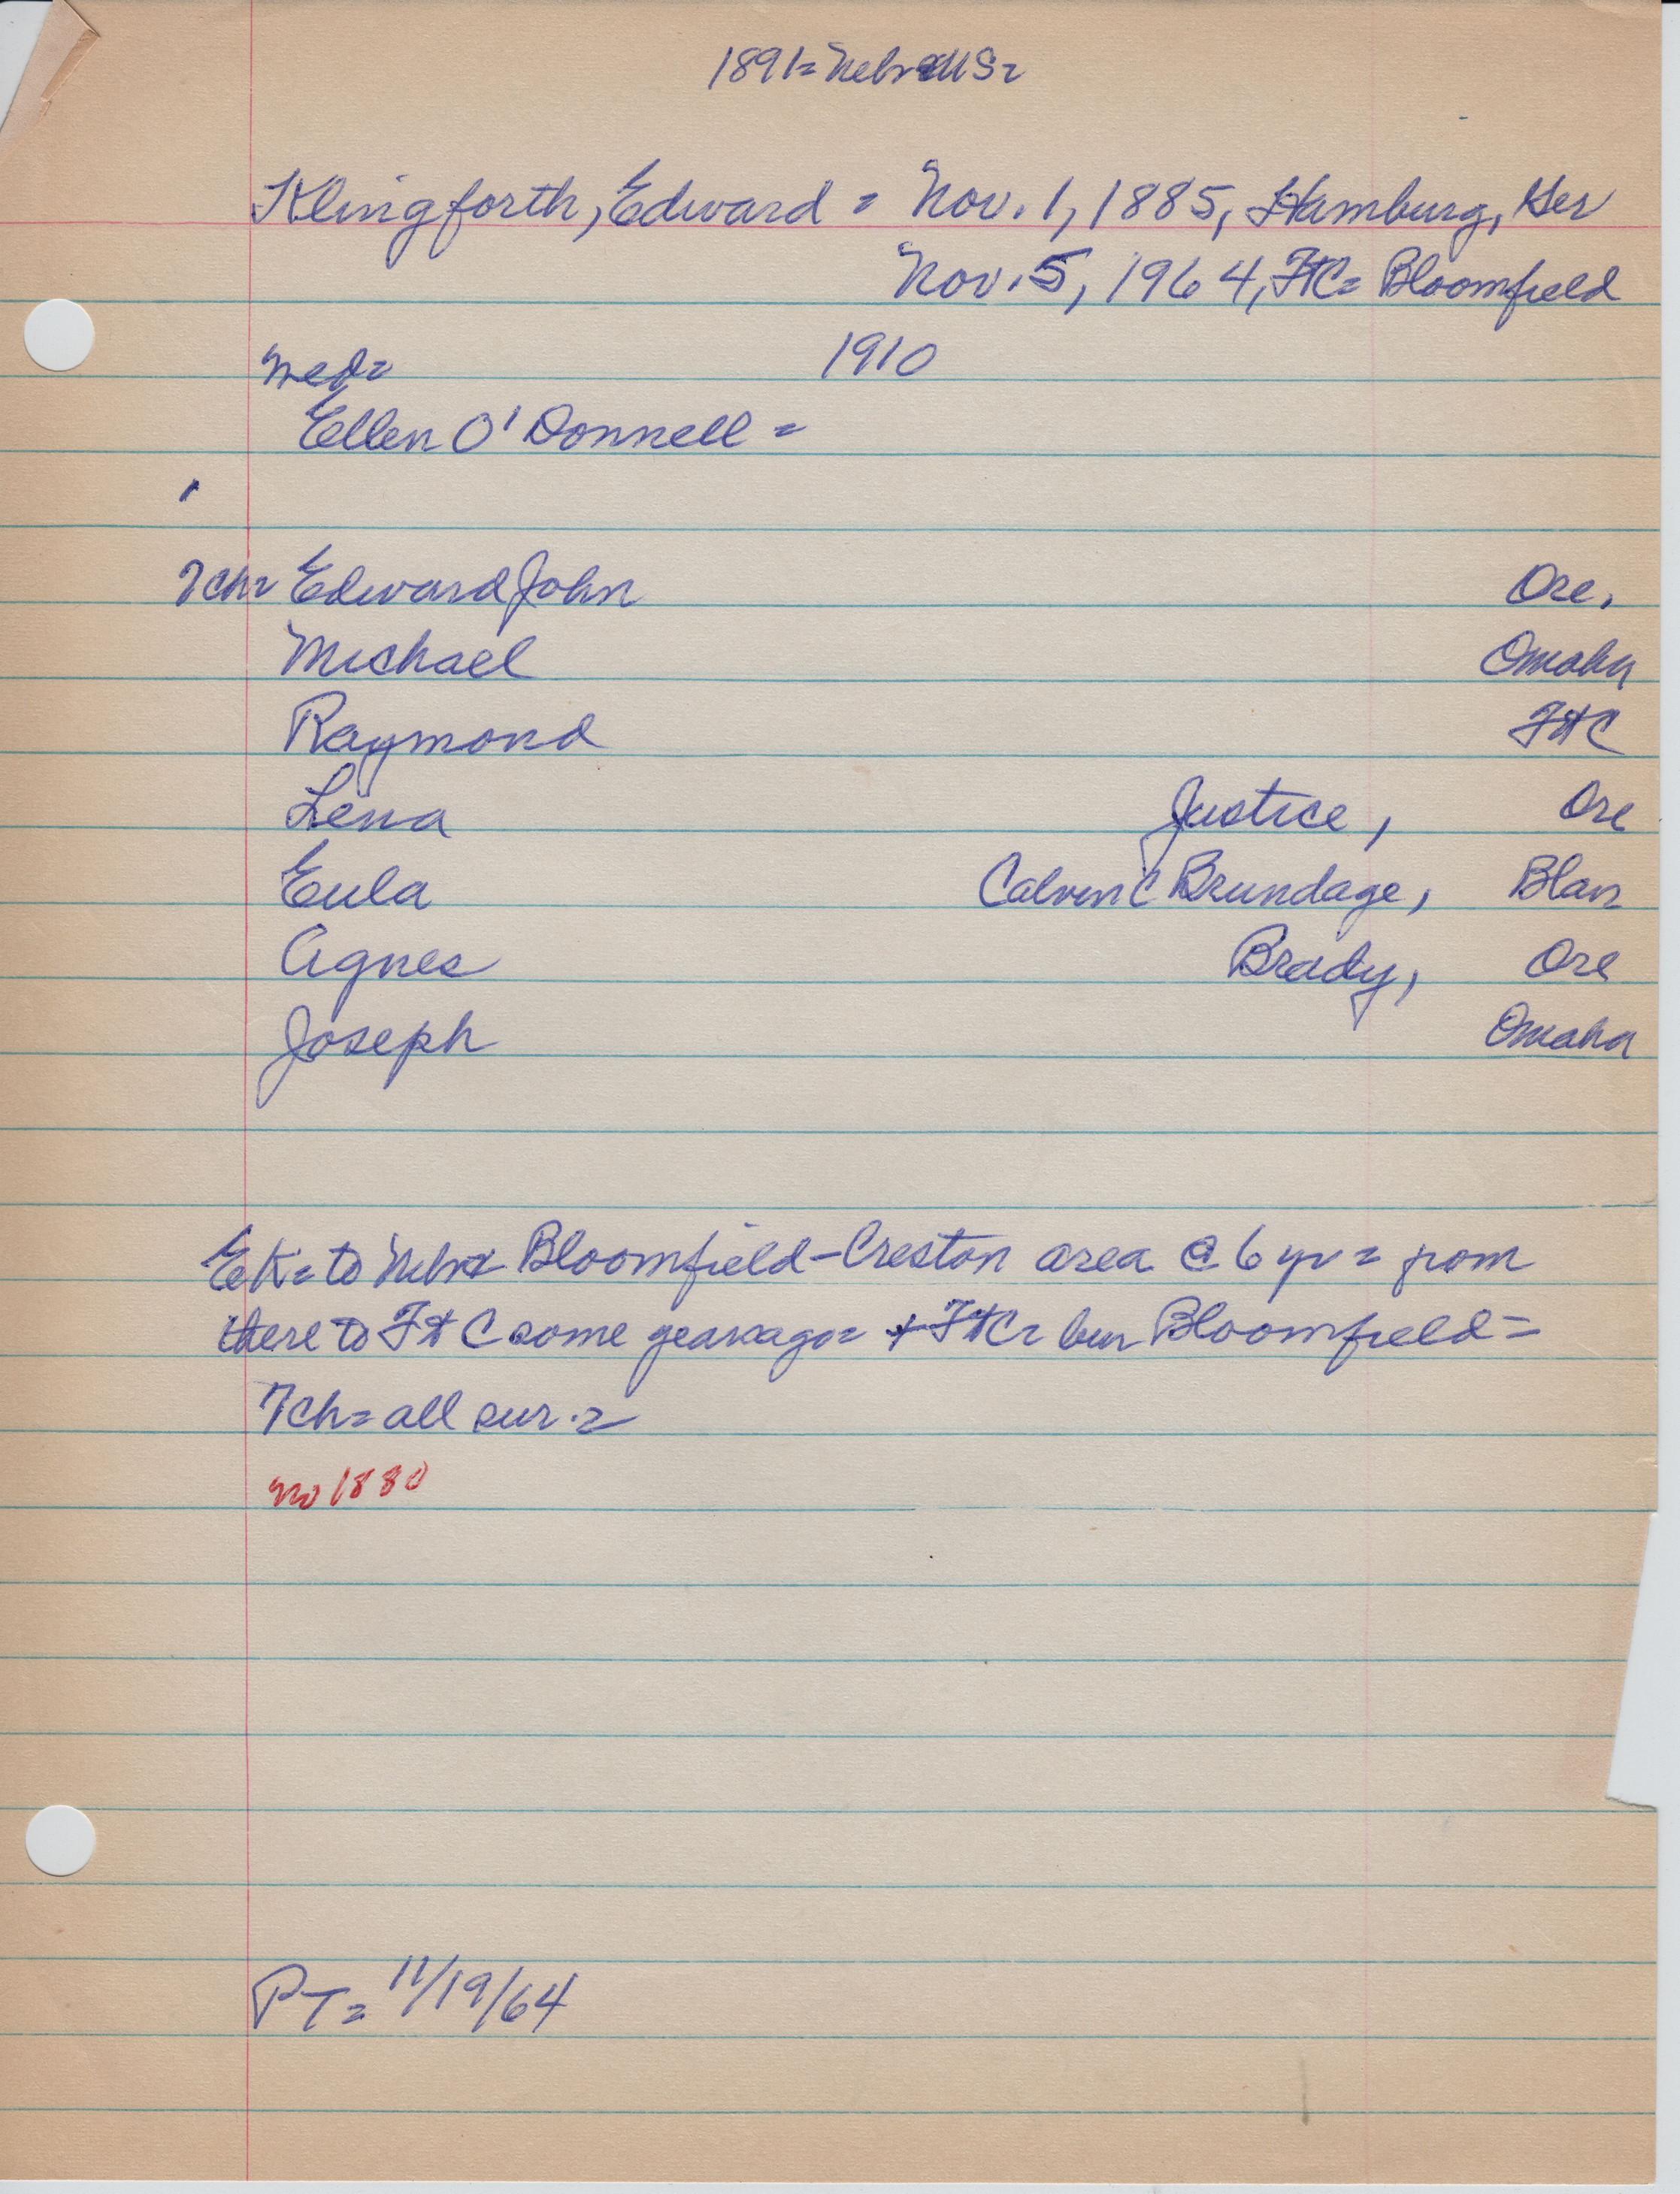 1891= Nebr US=
Klingforth, Edward = Nov. 1, 1885, Hamburg, Ger
Nov. 5, 1964, FtC= Bloomfield
med= 1910
Ellen O'Donnell =
7ch= Edward John Ore.
Michael Omaha
Raymond FtC
Lena Justice, Ore
Eula Calvin C Brundage, Blair
Agnes Brady, Ore
Joseph Omaha
EK= to Nebr Bloomfield-Creston area @ 6 yr = from
there to Ft C some yearsago= + FtC= bur Bloomfield=
7ch= all sur.=
no 1880
PT= 11/19/64